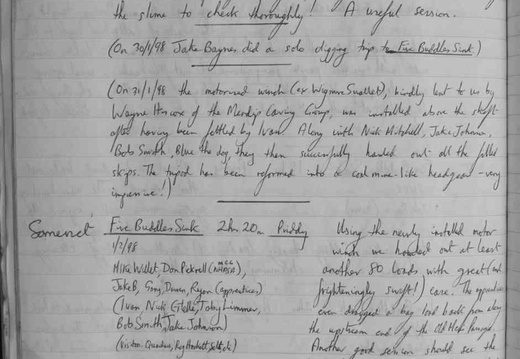 the slime to check thoroughly! A useful session.
(On 30/1/98 Jake Baynes did a solo digging trip to Five Buddles Sink)
(On 31/1/98 the motorised winch (ex Wigmore Swallet), kindly lent to us by
Wayne Hiscox of the Mendip Caving Group, was installed above the shaft
after having been fettled by Ivan. Along with Nick Mitchell, Jake Johnson,
Bob Smith, Blue the dog, they then successfully hauled out all the filled
skips. The tripod has been reformed into a coal mine-like headgear - very
impressive!)
Somerset Five Buddles Sink 2hr 20m Priddy
1/2/98
Mike Willett, Don
Jake B,
(Ivan, Toby Limmer,
Bob Smith, Jake Johnson)
(Visitors
Using the newly installed motor
winch we hauled out at least
another 80 loads with great (and
frighteningly swift!) ease. The
even dragged a bag load back from along
the upstream end of the Old
Another good session should see the